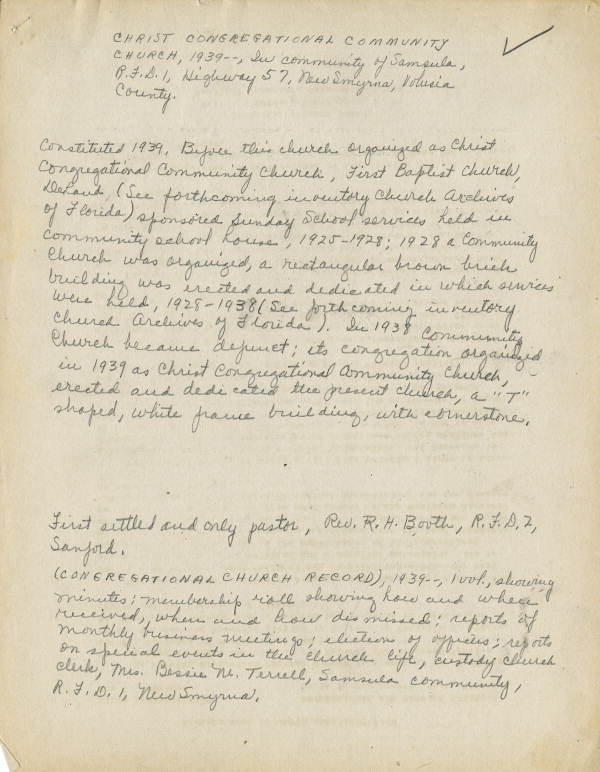 CHRIST CONGREGATIONAL COMMUNITY
CHURCH, 1939--, In community of Samsula,
R.F.D. 1, Highway 57, New Smyrna, Volusia
County.
Constituted 1939. Before this church organized as Christ
Congregational Community Church, First Baptist Church,
DeLand (See forthcoming inventory Church Archives
of Florida) sponsored Sunday School services held in
community school house, 1925-1928; 1928 a Community
Church was organized, a rectangular brown brick
building was erected and dedicated in which services
were held, 1928-1938 (See forthcoming inventory
Church Archives of Florida). In 1938 Community
Church became defunct; its congregation organized
in 1939 as Christ Congregational Community Church,
erected and dedicated the present church, a "T"
shaped, white frame building, with cornerstone.
First settled and only pastor, Rev. R. H. Booth, R.F.D. 2,
Sanford.
(CONGREGATIONAL CHURCH RECORD), 1939--, 1 vol., showing
minutes; membership roll showing how and when
received, when and how dismissed; reports of
monthly business meetings; election of officers; reports
on special events in the church life, custody church
clerk, Mrs. Bessie M. Terrell, Samsula community,
R.F.D. 1, New Smyrna.